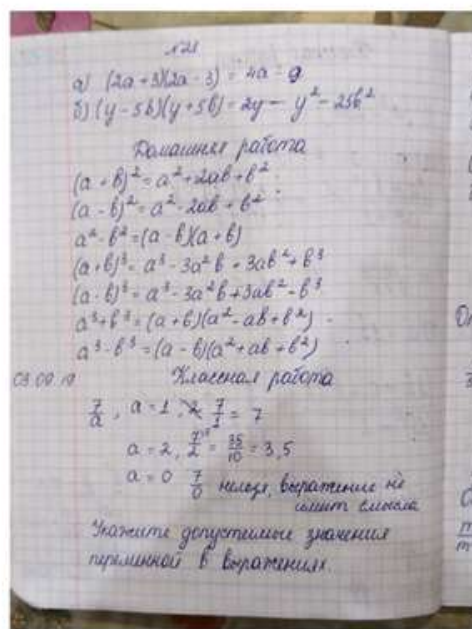 №28
а) (2a+3)(2a-3) = 4a - 9
б) (y-5b)(y+5b) = 2y - y² - 25b²
Домашняя работа
(a+b)² = a² + 2ab + b²
(a-b)² = a² - 2ab + b²
a² - b² = (a-b)(a+b)
(a+b)³ = a³ - 3a²b + 3ab² + b³
(a-b)³ = a³ - 3a²b + 3ab² - b³
a³+b³ = (a+b)(a² - ab + b²)
a³-b³ = (a-b)(a² + ab + b²)
03.09.19 Классная работа
7/a, a=1, 7/1 = 7
a=2, 7/2 = 35/10 = 3,5
a=0 7/0 нельзя, выражение не
имит смысла
Укажите допустимые значения
переменной в выражениях.